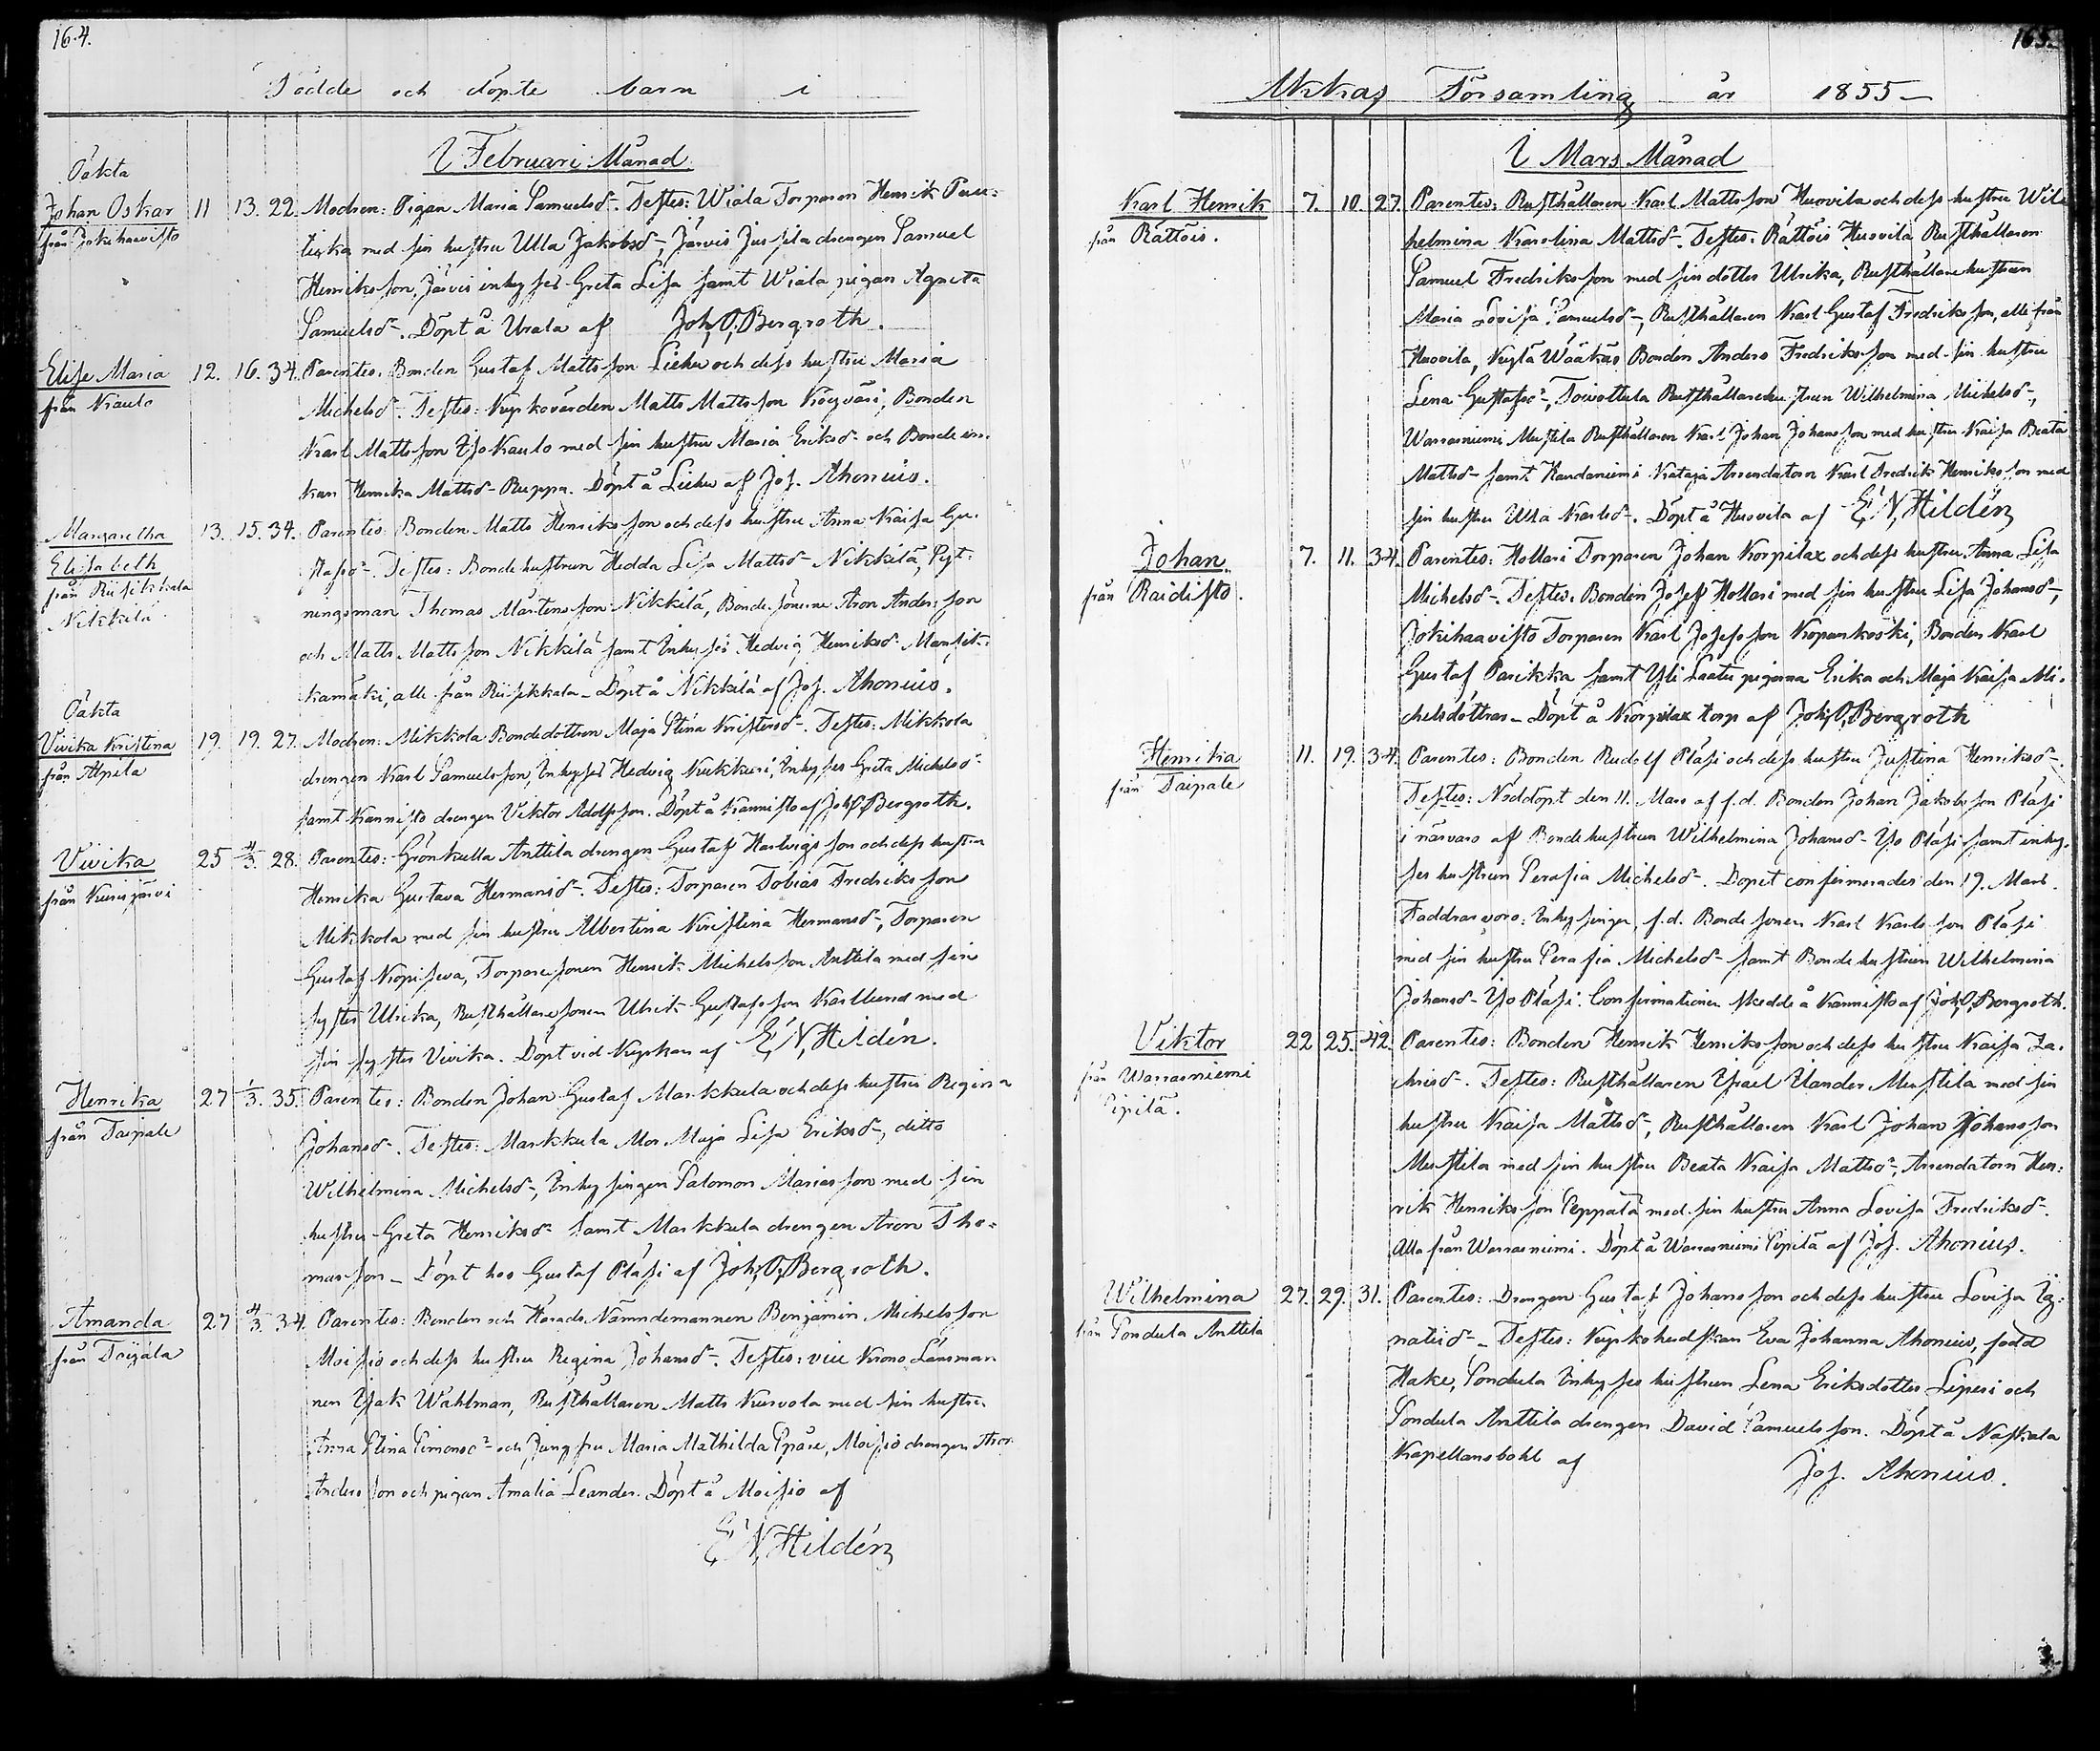 164.
Födde och döpte barn i
I Februari Månad
Oäkta
Johan Oskar 11 13. 22. Modren: Pigan Maria Samuelsdr. Testes: Wiala Torparen Henrik
från Jokihaavisto
med sin hustru Ulla Jakobsdr, Järvis Jussila drengen Samuel
Henriksson, Järvis inhyses Greta Lisa samt Wiala pigan Agneta
Samuelsdr. Döpt å Urala af Joh. O. Bergroth.
Elise Maria 12. 16. 34. Parentes: Bonden Gustaf Mattsson Lieku och dess hustru Maria
från Kaulo
Michelsdr. Testes: Kyrkovärden Matts Mattsson Bonden
Karl Mattsson Iso Kaulo med sin hustru Maria Eriksdr och Bondeen.
kan Henrika Mattsdr Ruppa. Döpt å Lieku af Jos. Ahonius.
Margaretha 13. 15. 34. Parentes: Bonden Matts Henriksson och dess hustru Anna Kaisa Gu-
Elisabeth
från Riisikkala
Nikkilä
stafsdr. Testes: Bondehustrun Hedda Lisa Mattsdr Nikkilä, Syt-
ningsman Thomas Mårtensson Nikkilä, Bondesönerne Aron Andersson
och Matts Mattsson Nikkilä samt Inhyses Hedvig Henriksdr Mansik-
kamäki, alle från Riisikkala. Döpt å Nikkilä af Jos. Ahonius.
Oäkta
Vivika Kristina 19. 19. 27. Modren: Mikkola Bondedottren Maja Stina Kristersdr. Testes: Mikkola
från Alpila
drengen Karl Samuelsson, Inhyses Hedvig Kukkuri, Inhyses Greta Michelsdr
samt Kannisto drengen Viktor Adolfsson. Döpt å Kannisto af Joh. O. Bergroth.
Vivika 25 4/3. 28. Parentes: Grönkulla Anttila drengen Gustaf Hartvigsson och dess hustru
från Kurisjärvi
Henrika Gustava Hermansdr. Testes: Torparen Tobias Fredriksson
Mikkola med sin hustru Albertina Kristina Hermansdr, Torparen
Gustaf Kopiseva, Torparesonen Henrik Michelsson Anttila med sin
syster Ulrika, Rusthållaresonen Ulrik Gustafsson Karllund med
sin syster Vivika. Döpt vid Kyrkan af E. N. Hildén.
Henrika 27 1/3. 35. Parentes: Bonden Johan Gustaf Markkula och dess hustru Regina
från Taipale
Johansdr. Testes: Markkula Mor Maja Lisa Eriksdr, ditto
Wilhelmina Michelsdr, Inhysingen Salomon Mariasson med sin
hustru Greta Henriksdr samt Markkula drengen Aron Tho-
masson. Döpt hos Gustaf Pläsi af Joh. O. Bergroth.
Amanda 27 4/3. 34. Parentes: Bonden och Härads Nämndemannen Benjamin Michelsson
från Toijala
Moisio och dess hustru Regina Johansdr. Testes: vice Krono Länsman
nen Isak Wahlman, Rusthållaren Matts Kurvola med sin hustru
Anna Stina Simonsdr och Jungfru Maria Mathilda Spåre, Moisio drengen Aron
Andersson och pigan Amalia Leander. Döpt å Moisio af
E. N. Hildén
165.
Akkas Församling år 1855
I Mars Månad
Karl Henrik 7. 10. 27. Parentes: Rusthållaren Karl Mattsson Huovila och dess hustru Wil
från Rättöis.
helmina Karolina Mattsdr. Testes: Rättöis Huovila Rusthållaren
Samuel Fredriksson med sin dotter Ulrika, Rusthållarehustrun
Maria Lovisa Samuelsdr, Rusthållaren Karl Gustaf Fredriksson, alle från
Huovila, Kylä Wääkäs Bonden Anders Fredriksson med sin hustru
Lena Gustafsdr, Toivottula Rusthållarehustrun Wilhelmina Michelsdr,
Warrasniemi Mustila Rusthållaren Karl Johan Johansson med hustru Kaisa Beata
Mattsdr samt Haudaniemi Kataja Arrendatorn Karl Fredrik Henriksson med
sin hustru Ulla Karlsdr. Döpt å Huovila af E. N. Hildén
Johan 7. 11. 34. Parentes: Hollari Torparen Johan Korpilax och dess hustru Anna Lisa
från Raidisto.
Michelsdr. Testes: Bonden Josef Hollari med sin hustru Lisa Johansdr,
Jokihaavisto Torparen Karl Josefsson Kopankoski, Bonden Karl
Gustaf Parikka samt Yli Laatu pigorna Erika och Maja Kaisa Mi-
chelsdöttrar. Döpt å Korpilax torp af Joh. O. Bergroth
Henrika 11. 19. 34. Parentes: Bonden Rudolf Pläsi och dess hustru Justina Henriksdr.
från Taipale
Testes: Nöddöpt den 11. Mars af f.d. Bonden Johan Jakobsson Pläsi
i närvaro af Bondehustrun Wilhelmina Johansdr Iso Pläsi samt inhy-
ses hustrun Serafia Michelsdr. Dopet confirmerades den 19. Mars.
Faddrar voro: Inhysingen, f.d. Bondesonen Karl Karlsson Pläsi
med sin hustru Serafia Michelsdr samt Bondehustrun Wilhelmina
Johansdr Iso Pläsi. Confirmationen skedde å Kannisto af Joh. O. Bergroth.
Viktor 22 25. 42. Parentes: Bonden Henrik Henriksson och dess hustru Kaisa Za-
från Warrasniemi
Pipilä.
chrisdr. Testes: Rusthållaren Israel Ilander Mustila med sin
hustru Kaisa Mattsdr, Rusthållaren Karl Johan Johansson
Mustila med sin hustru Beata Kaisa Mattsdr, Arrendatorn Hen-
rik Henriksson Seppälä med sin hustru Anna Lovisa Fredriksdr.
Alla från Warrasniemi. Döpt å Warrasniemi Pipilä af Jos. Ahonius.
Wilhelmina 27. 29. 31. Parentes: Drengen Gustaf Johansson och dess hustru Lovisa Ig-
från Sondula Anttila
natiidr. Testes: Kyrkoherdskan Eva Johanna Ahonius, född
Hake, Sondula Inhyses hustrun Lena Eriksdotter Liperi och
Sondula Anttila drengen David Samuelsson. Döpt å Naskala
Kapellansbohl af Jos. Ahonius.